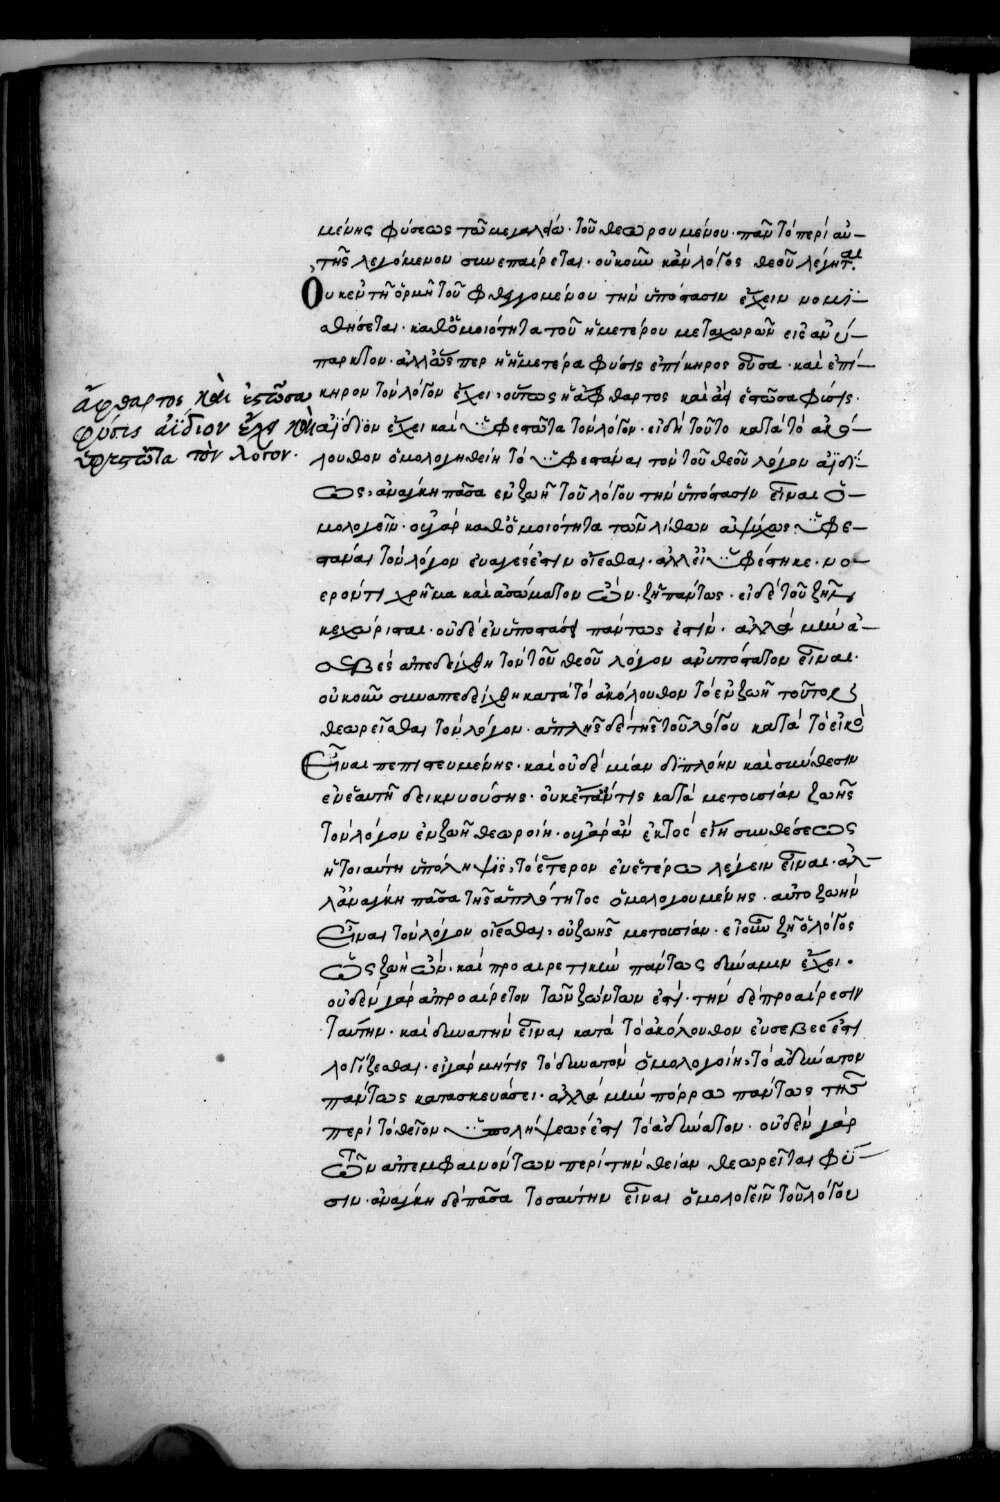 μένης φύσεως τῶ μεγαλείω τοῦ θεωρουμένου · πᾶν τὸ περὶ αὐ-
τῆς λεγόμενον συνεπαίρεται · οὐκοῦν κἂν λόγος θεοῦ λέγηται.
Οὐκ ἐν τῇ ὁρμῇ τοῦ φθεγγομένου τὴν ὑπόστασιν ἔχειν νομι-
σθήσεται · καθ' ὁμοιότητα τοῦ ἡμετέρου μεταχωρῶν εἰς ἀνύ-
παρκτον · ἀλλ' ὥσπερ ἡ ἡμετέρα φύσις ἐπίκηρος οὖσα · καὶ ἐπί-
κηρον τὸν λόγον ἔχει, οὕτως ἡ ἄφθαρτος καὶ ἀεὶ ἑστῶσα φύσις ·
ἄφθαρτος καὶ ἑστῶσα
φύσις ἀΐδιον ἔχει καὶ
ὑφεστῶτα τὸν λόγον ·
ἀΐδιον ἔχει καὶ ὑφεστῶτα τὸν λόγον · εἰ δὴ τοῦτο κατὰ τὸ ἀκό-
λουθον ὁμολογηθείη τὸ ὑφεστάναι τὸν τοῦ θεοῦ λόγον ἀϊδί-
ως, ἀνάγκη πᾶσα ἐν ζωῇ τοῦ λόγου τὴν ὑπόστασιν εἶναι ὁ-
μολογεῖν · οὐ γὰρ καθ' ὁμοιότητα τῶν λίθων ἀψύχως ὑφε-
στάναι τὸν λόγον εὐαγές ἐστιν οἴεσθαι · ἀλλ' εἰ ὑφέστηκε · νο-
ερόν τι χρῆμα καὶ ἀσώματον ὤν · ζῇ πάντως · εἰ δὲ τοῦ ζῆν
κεχώρισται · οὐδὲ ἐν ὑποστάσει πάντως ἐστίν · ἀλλὰ μὴν ἀ-
σεβὲς ἀπεδείχθη τὸν τοῦ θεοῦ λόγον ἀνυπόστατον εἶναι ·
οὐκοῦν συναπεδείχθη κατὰ τὸ ἀκόλουθον τὸ ἐν ζωῇ τοῦτον
θεωρεῖσθαι τὸν λόγον · ἁπλῆς δὲ τῆς τοῦ λόγου κατὰ τὸ εἰκὸς
Εἶναι πεπιστευμένης · καὶ οὐδὲ μίαν διπλόην καὶ σύνθεσιν
ἐν ἑαυτῇ δεικνυούσης · οὐκέτ' ἄν τις κατὰ μετουσίαν ζωῆς
τὸν λόγον ἐν ζωῇ θεωροίη · οὐ γὰρ ἂν ἐκτὸς εἴη συνθέσεως
ἡ τοιαύτη ὑπόληψις, τὸ ἕτερον ἐν ἑτέρω λέγειν εἶναι · ἀλ-
λ' ἀνάγκη πᾶσα τῆς ἁπλότητος ὁμολογουμένης · αὐτοζωὴν
Εἶναι τὸν λόγον οἴεσθαι, οὐ ζωῆς μετουσίαν · εἰ οὖν ζῇ ὁ λόγος
ὡς ζωὴ ὤν · καὶ προαιρετικὴν πάντως δύναμιν ἔχει ·
οὐδὲν γὰρ ἀπροαίρετον τῶν ζώντων ἐστί · τὴν δὲ προαίρεσιν
ταύτην · καὶ δυνατὴν εἶναι κατὰ τὸ ἀκόλουθον εὐσεβές ἐστι
λογίζεσθαι · εἰ γὰρ μή τις τὸ δυνατὸν ὁμολογοίη, τὸ ἀδύνατον
πάντως κατασκευάσει · ἀλλὰ μὴν πόρρω πάντως τῆς
περὶ τὸ θεῖον ὑπολήψεώς ἐστι τὸ ἀδύνατον · οὐδὲν γὰρ
τῶν ἀπεμφαινόντων περὶ τὴν θείαν θεωρεῖται φύ-
σιν · ἀνάγκη δὲ πᾶσα τοσαύτην εἶναι ὁμολογεῖν τοῦ λόγου